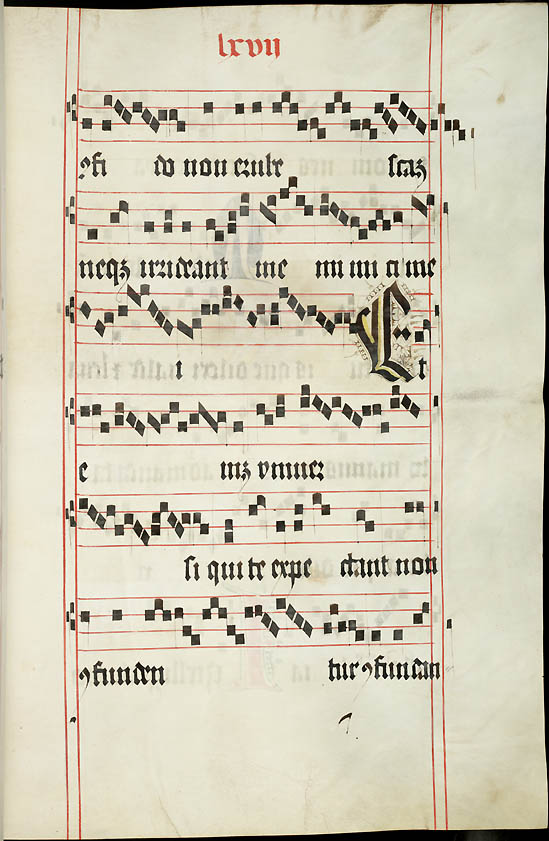 lxvij
ꝯfi do non erube scaꝫ
neqꝫ irrideant me inimici me
i Et
e niꝫ vniuer
si qui te expe ctant non
ꝯfunden tur ꝯfundan